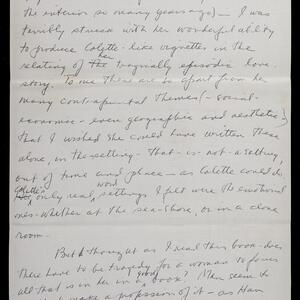 the interior so many years ago) — I was
terribly struck with her wonderful ability
to produce Colette-like vignettes in the
relating of the tragically episodic love
story. To me these are so apart from her
many contrapuntal themes (— social-
economic — even geographic and aesthetic)
that I wished she could have written these
alone, in the setting — that — is — not — a setting,
out of time and place — as Colette could do.
Colette's only real word settings I felt were the emotional
ones — whether at the sea-shore, or in a close
room.
But I thought as I read this book — does
there have to be tragedy for a woman to
all that is in her in a good book? Men seem to
make a profession of it — as